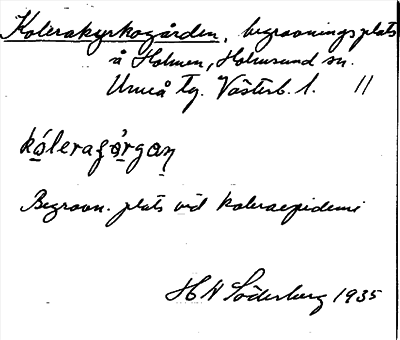 Kolerakyrkogården, begravningsplats
å Holmen, Holmsund sn.
Umeå tg. Västerb. l. 11
kóleragǫ́rgan
Begravn. plats vid koleraepidemi
H N Söderberg 1935